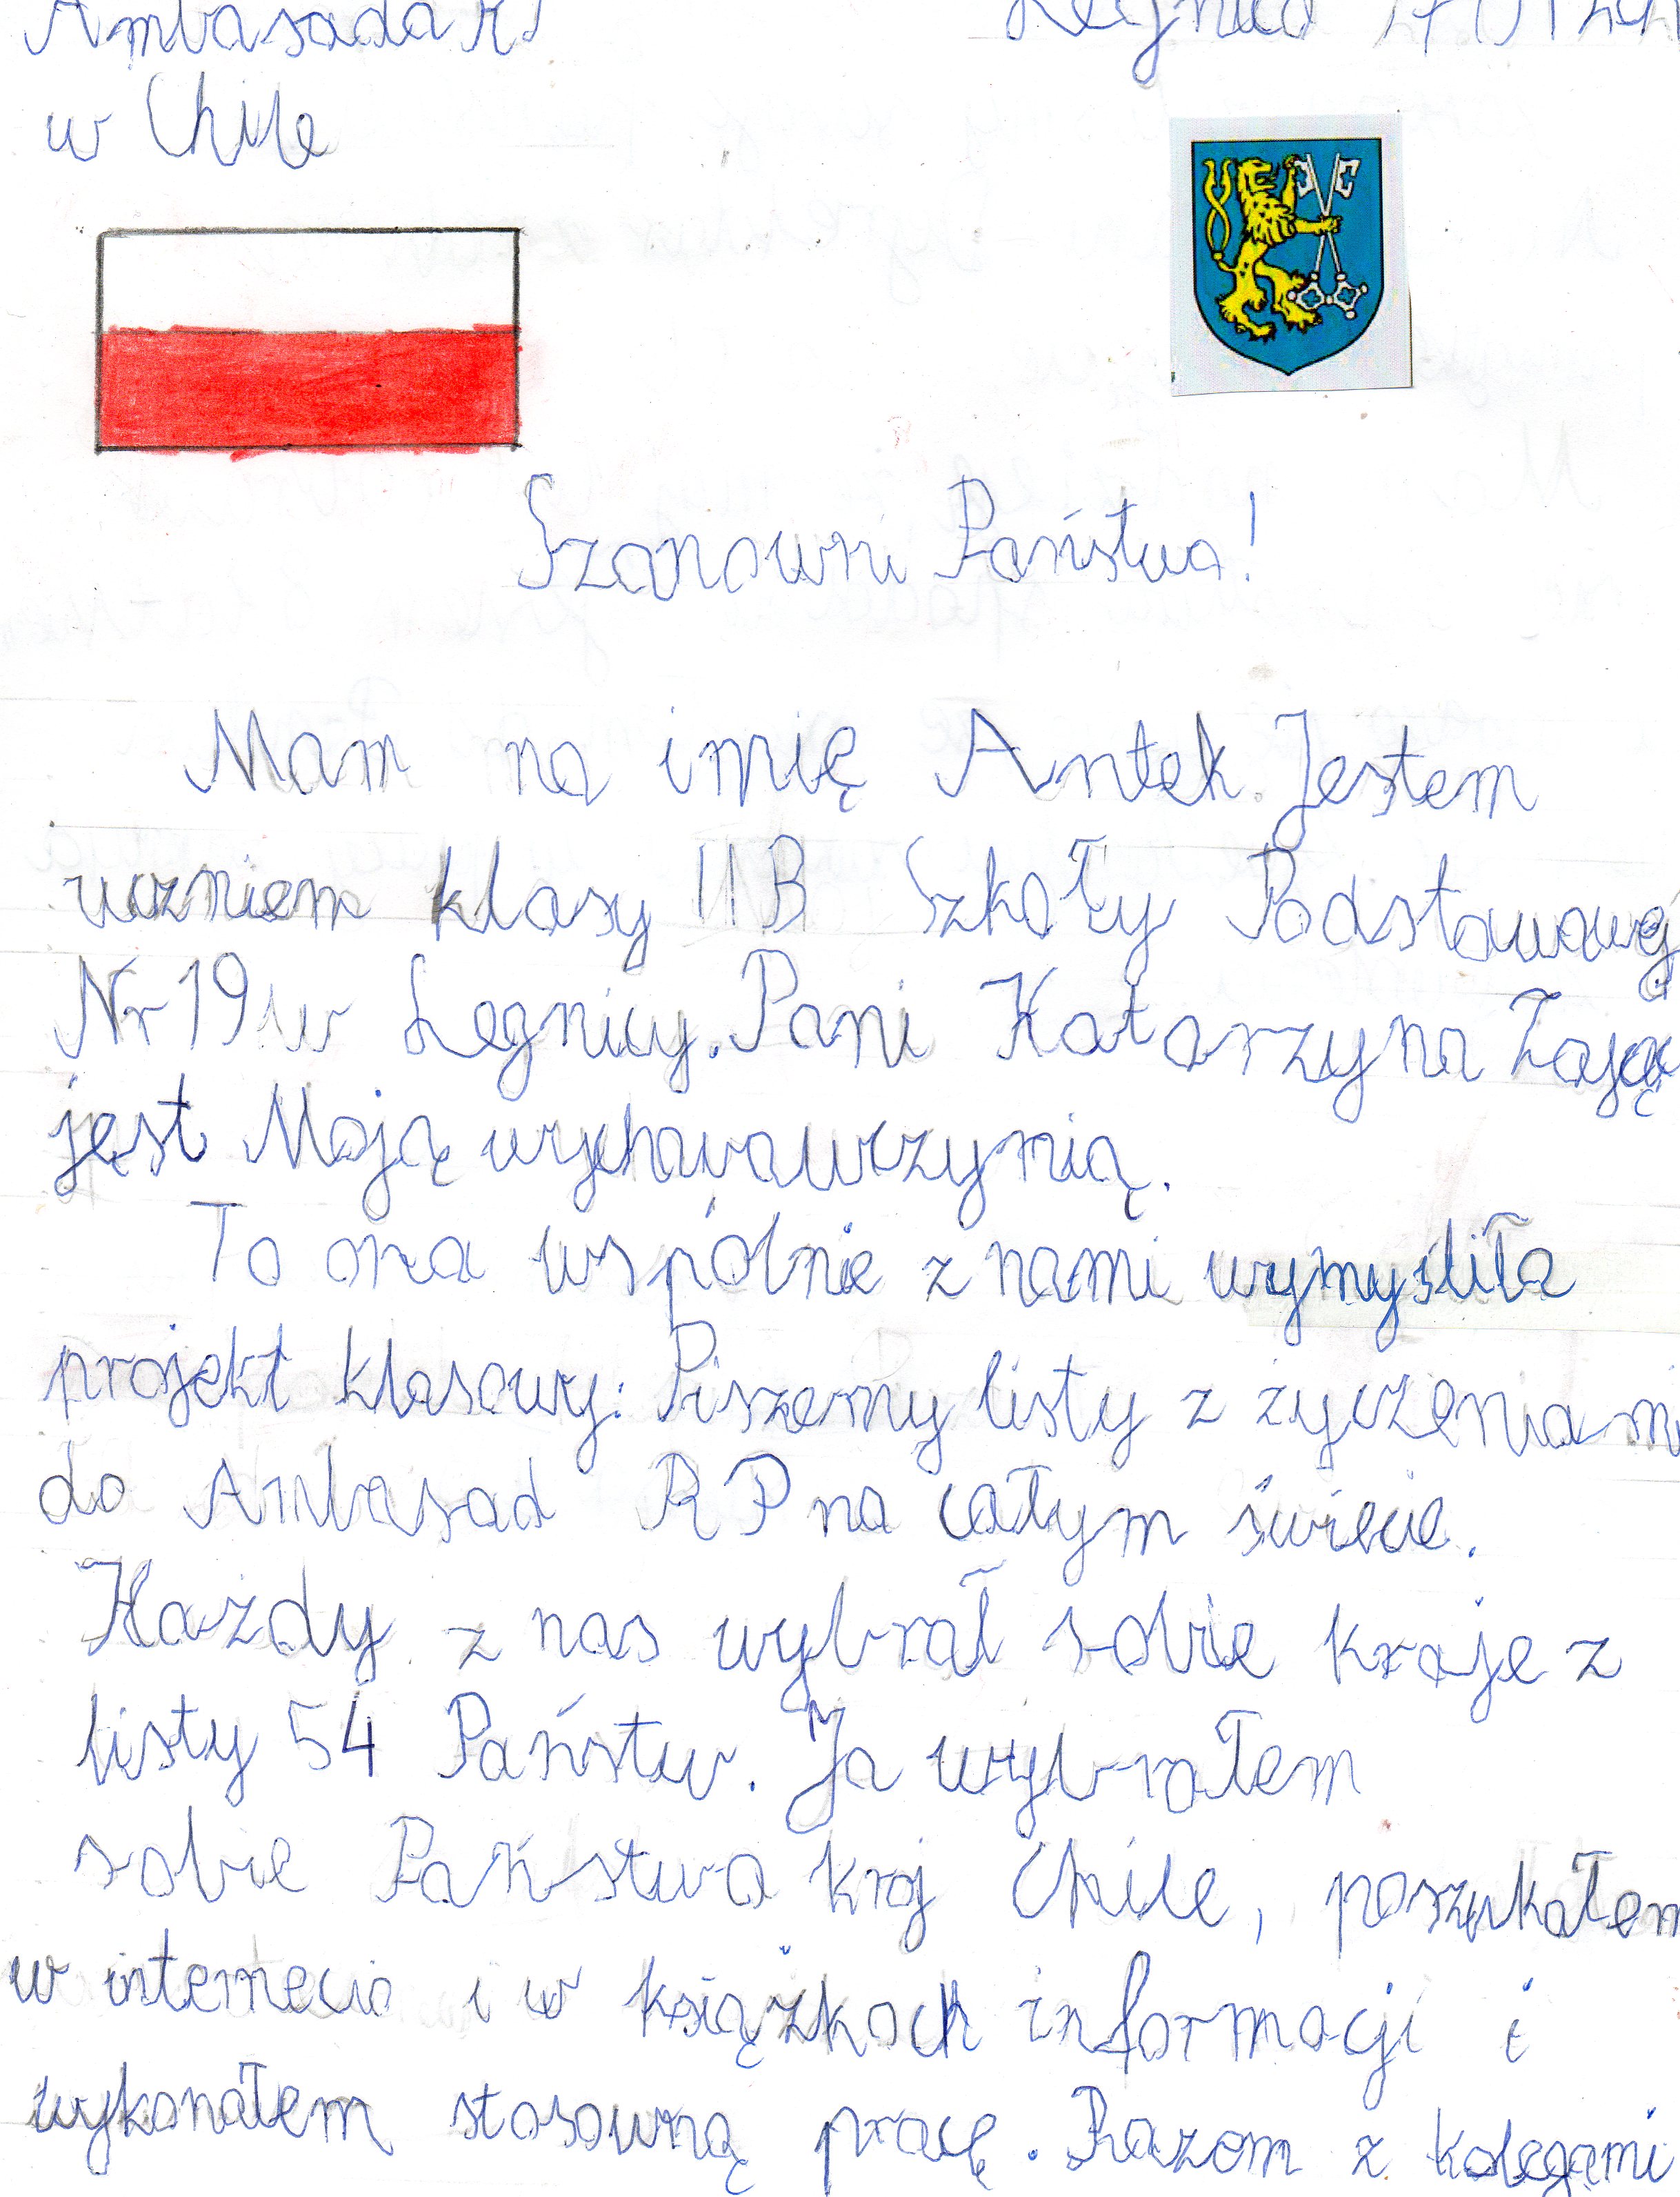 Ambasada RP
Legnica
w Chile
Szanowni Państwo!
Mam na imię Antek. Jestem
uczniem klasy IIB Szkoły Podstawowej
Nr 19 w Legnicy. Pani Katarzyna
jest Moją wychowawczynią.
To ona wspólnie z nami wymyśliła
projekt klasowy: Piszemy listy z życzeniami
do Ambasad RP na całym świecie.
Każdy z nas wybrał sobie kraje z
listy 54 Państw. Ja wybrałem
sobie Państwo kraj Chile, poszukałem
w internecie i w książkach informacji i
wykonałem stosowną pracę. Razem z kolegami